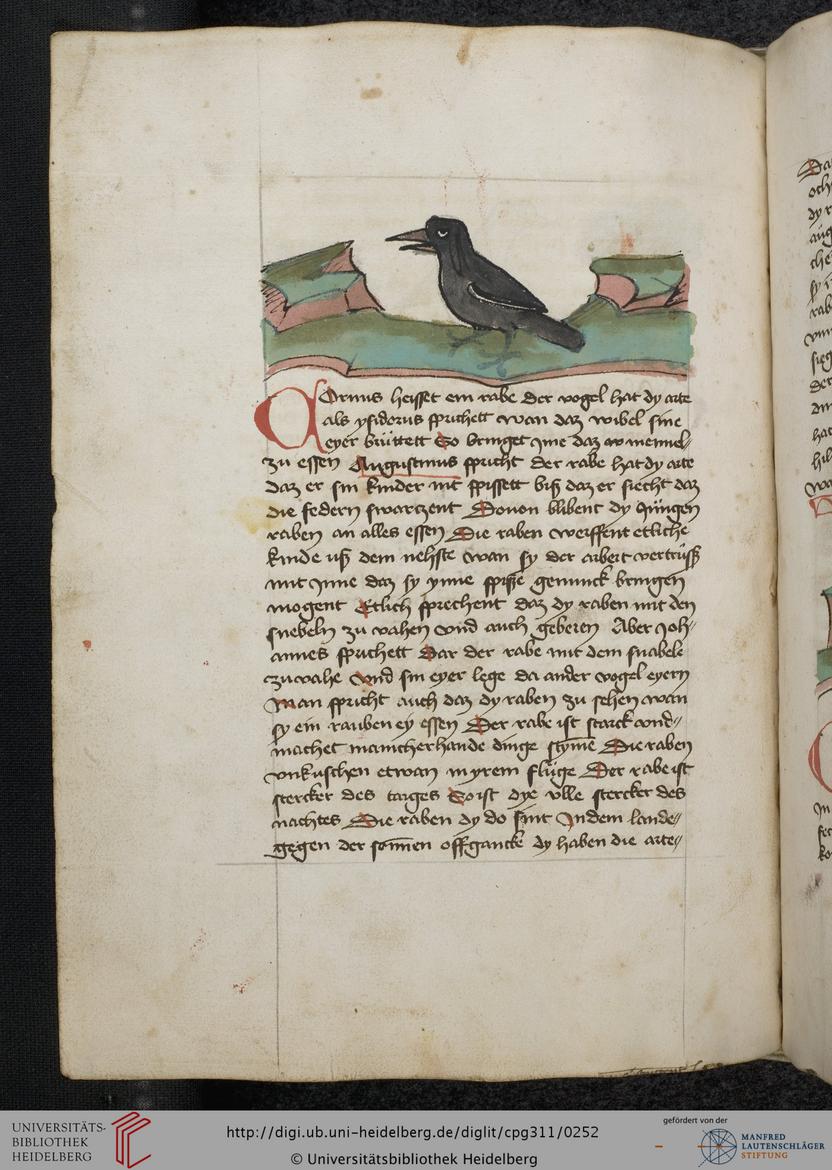 COrnus heisset ein rabe der vogel hat dy arte
als ysidorus sprichett wan daz wibel sine
eyer brüttett So bringet jme daz menmel-
zu essen Augustinus spricht der rabe hat dy arte
daz er sin kinder nit spissett biß daz er siecht daz
die federn swarczent Douon blibent dy jüngen
raben an alles essen Die raben werffent etliche
kinde uß dem nehste wan sy der arbeit vertrüsß
mit jnne daz sy ynne spisse genunck bringen
mogent Etlich sprechent daz dy raben mit den
snebeln zu vahen vnd auch geberen Aber Joh-
annes sprichett Dar der rabe mit dem snabele
zu vahe Vnd sin eyer lege da ander vogel eyern
Man spricht auch daz dy raben zu sehen wan
sy ein rauben ey essen Der rabe ist starck vnd-
machet mancherhande dinge styme Die raben
vnkuschen etwan in yrem flüge Der rabe ist
stercker des tages So ist dye vlle stercker des
nachtes Die raben dy do sint Jn dem lande-
gegen der sonnen offgancke dy haben die arte-
UNIVERSITÄTS-
BIBLIOTHEK
HEIDELBERG
http://digi.ub.uni-heidelberg.de/diglit/cpg311/0252
© Universitätsbibliothek Heidelberg
gefördert von der
MANFRED
LAUTENSCHLÄGER
STIFTUNG